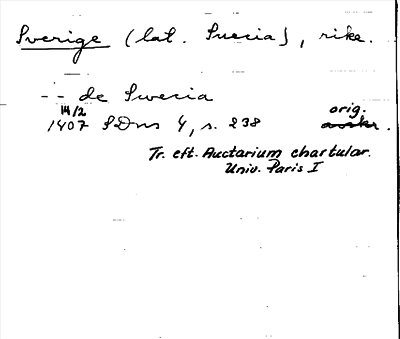 Sverige (lat. Suecia), rike.
-- de Swecia
14/2 orig.
1407 SDns 4, s. 238 avskr.
Tr. eft. Auctarium chartular.
Univ. Paris I